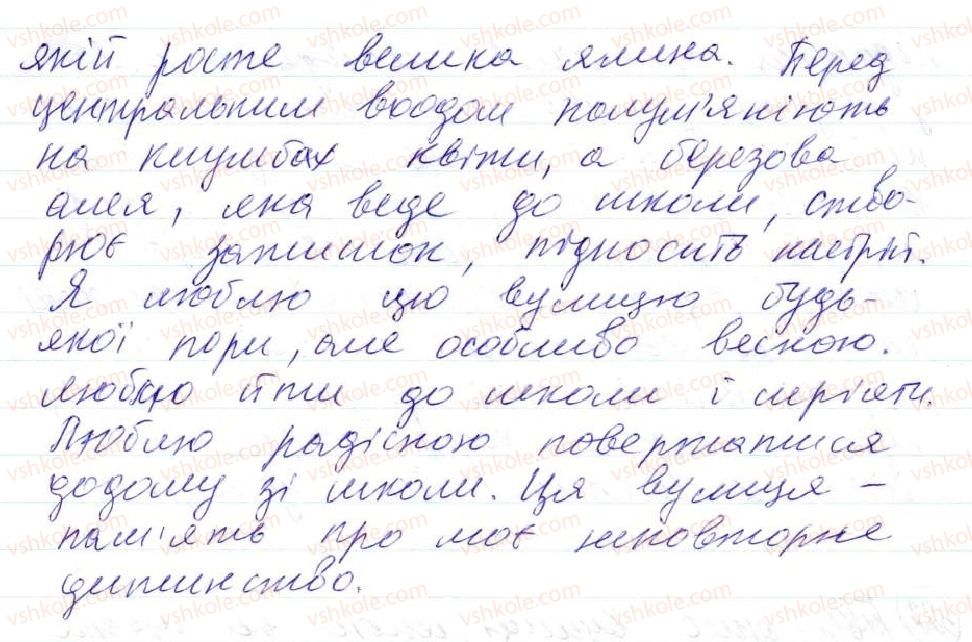 якій росте велика ялина. Перед
центральним входом полум'яніють
на клумбах квіти, а березова
алея, яка веде до школи, ство-
рює затишок, підносить настрій.
Я люблю цю вулицю будь-
якої пори, але особливо весною.
Люблю йти до школи і мріяти.
Люблю радісною повертатися
додому зі школи. Ця вулиця –
пам'ять про моє неповторне
дитинство.
vshkole.com